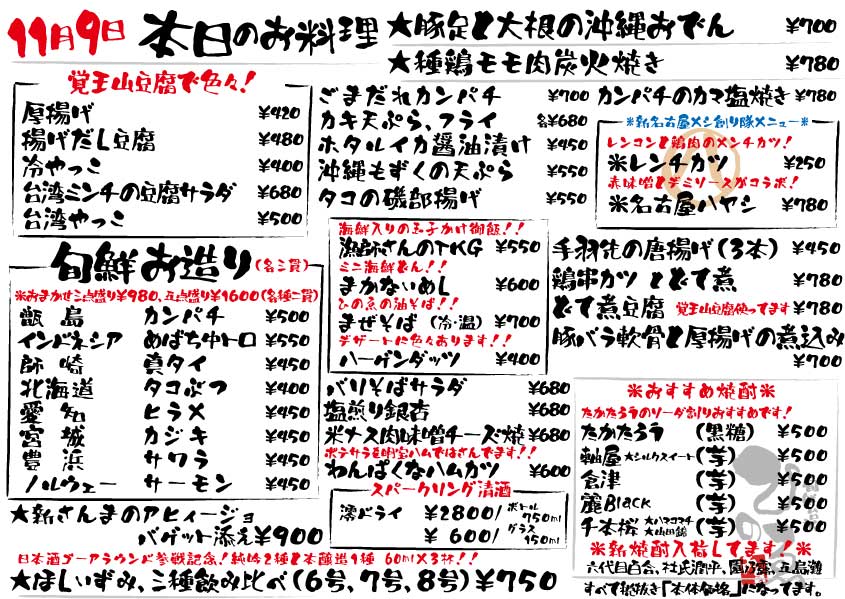 11月9日 本日のお料理
★豚足と大根の沖縄おでん ¥700
★種鶏モモ肉炭火焼き ¥780
覚王山豆腐で色々!
厚揚げ ¥420
揚げだし豆腐 ¥480
冷やっこ ¥400
台湾ミンチの豆腐サラダ ¥680
台湾やっこ ¥500
ごまだれカンパチ ¥700
カキ天ぷら、フライ 各¥680
ホタルイカ醤油漬け ¥450
沖縄もずくの天ぷら ¥550
タコの磯部揚げ ¥550
カンパチのカマ塩焼き ¥780
※新名古屋メシ創り隊メニュー※
レンコンと鶏肉のメンチカツ!
※レンチカツ ¥250
赤味噌とデミソースがコラボ!
※名古屋ハヤシ ¥780
旬鮮お造り(各三貫)
※おまかせ三点盛り¥980、五点盛り¥1600(各種二貫)
甑島 カンパチ ¥500
インドネシア めばち中トロ ¥550
師崎 真タイ ¥450
北海道 タコぶつ ¥400
愛知 ヒラメ ¥450
宮城 カジキ ¥450
豊浜 サワラ ¥450
ノルウェー サーモン ¥450
海鮮入りの玉子かけ御飯!!
漁師さんのTKG ¥550
ミニ海鮮どん!!
まかないめし ¥600
ひの魚の油そば!!
まぜそば (冷・温) ¥700
デザートに色々あります!!
ハーゲンダッツ ¥400
手羽先の唐揚げ(3本) ¥450
鶏串カツ とどて煮 ¥780
どて煮豆腐 覚王山豆腐使ってます ¥780
豚バラ軟骨と厚揚げの煮込み
¥700
バリそばサラダ ¥680
塩煎り銀杏 ¥680
米ナス肉味噌チーズ焼 ¥680
ポテサラを明宝ハムではさんでます!!
わんぱくなハムカツ ¥600
スパークリング清酒
澪ドライ ¥2800/ボトル750ml
¥600/グラス150ml
※おすすめ焼酎※
たかたろうのソーダ割りおすすめです!
たかたろう (黒糖) ¥500
軸屋 ★シルクスイート (芋) ¥500
倉津 (芋) ¥500
麗Black (芋) ¥500
千本桜 ★ハマコマチ ★山田錦 (芋) ¥500
※新焼酎入荷してます!※
六代目百合、杜氏潤平、園乃露、五島灘
すべて税抜き「本体価格」になってます。
★新さんまのアヒィージョ
バゲット添え¥900
日本酒ゴーアラウンド参戦記念!純吟2種と本醸造1種 60ml×3杯!!
★ほしいずみ、三種飲み比べ(6号、7号、8号)¥750